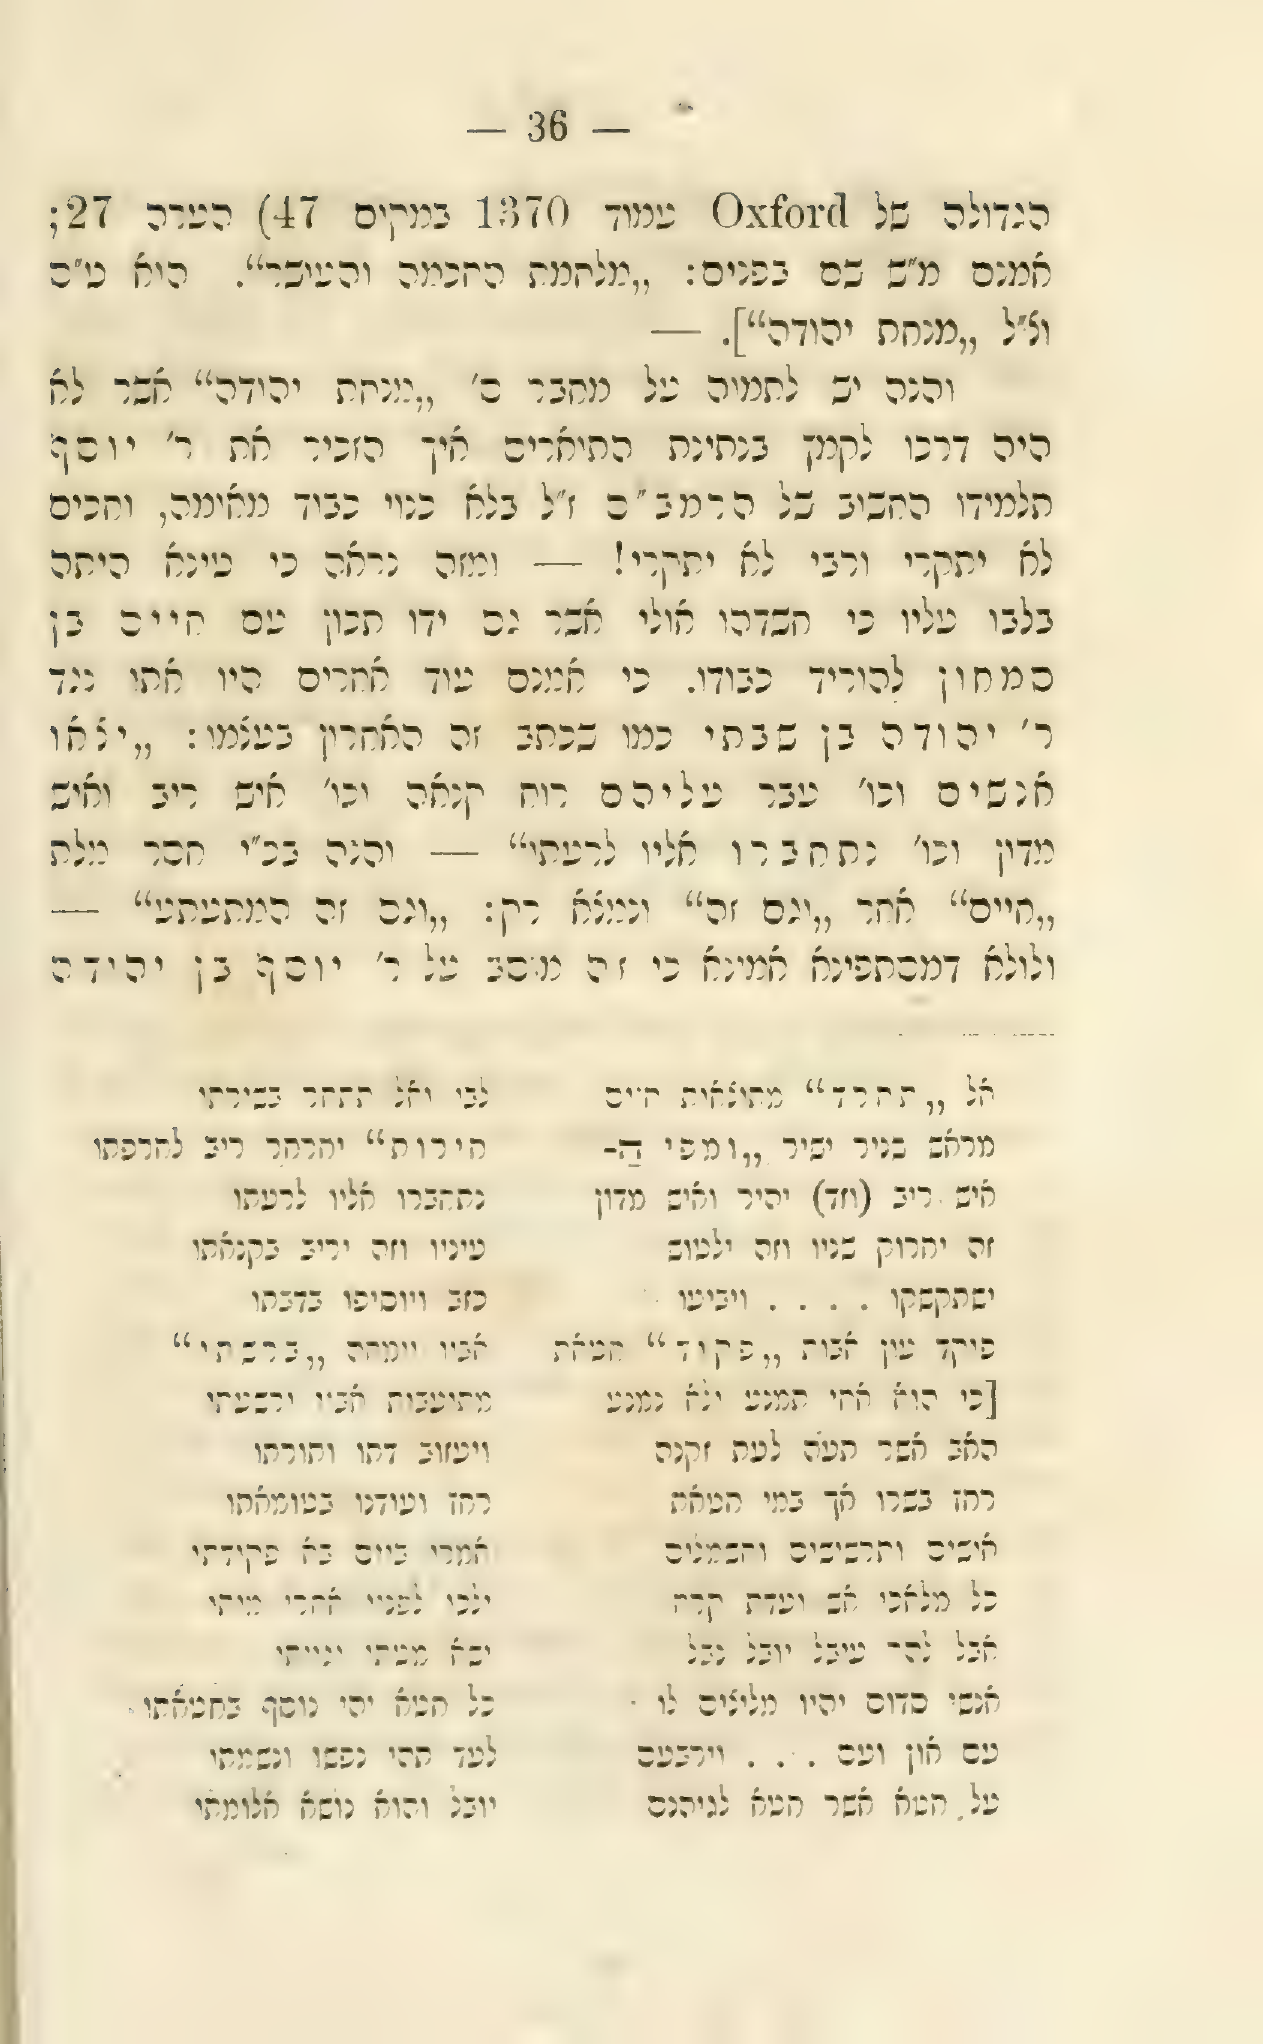 — 36 —
הגדולה של Oxford עמוד 1370 במקום 47) הערה 27;
אמנם מ״ש שם בפנים: „מלחמת החכמה והעושר“. הוא ט״ס
וצ״ל „מנחת יהודה“]. —
והנה יש לתמוה על מחבר ס׳ „מנחת יהודה“ אשר לא
היה דרכו לקמץ בנתינת התוארים איך הזכיר את ר׳ יוסף
תלמידו החשוב של הרמב״ם ז״ל בלא כנוי כבוד מאומה, וחכים
לא יתקרי ורבי לא יתקרי! — ומזה נראה כי טינא היתה
בלבו עליו כי חשדהו אולי אשר גם ידו תכון עם חיים בן
סמחון להוריד כבודו. כי אמנם עוד אחרים היו אתו נגד
ר׳ יהודה בן שבתי כמו שכתב זה האחרון בעצמו: „יצאו
אנשים וכו׳ עבר עליהם רוח קנאה וכו׳ איש ריב ואיש
מדון וכו׳ נתחברו אליו לרעתי“ — והנה בכ״י חסר מלת
„חיים“ אחר „וגם זה“ ונמצא רק: „וגם זה המתעתע“ —
ולולא דמסתפינא אמינא כי זה מוסב על ר׳ יוסף בן יהודה
אל „תחרד“ מתוצאות חיים לבי ואל תתחר בשירתו
מראש בניר ישיר „ומפי ה- חירות“ יחרחר ריב לחרפתו
איש ריב (וזד) יהיר ואיש מדון נתחברו אליו לרעתו
זה יחרוק שניו וזה ילטוש עיניו וזה יריב בקנאתו
ישתקשקו . . . . ויביעו כזב ויוסיפו בדבתו
פוקד עון אבות „פקוד“ חטאת אביו וימחה „ברשתי“
[כי הוא אחי תמנע ולא נמנע מתועבות אביו ורשעתו
האב אשר תעה לעת זקנה ויעזוב דתו ותורתו
רחץ בשרו אך במי חטאת רחץ ועודנו בטומאתו
אישים ותרשישים וחשמלים אמרו ביום בא פקודתי
כל מלאכי אש ועדת קרח ילכו לפניו אחרי מותו
אבל להר עיבל יובל נבל
אנשי סדום יהיו מליצים לו כל חטא יהי נוסף בחטאתו
עם און ועם . . . וירבעם לעד תהי נפשו ונשמתו
על חטא אשר חטא לגיהנם יובל והוא נושא אלומתו